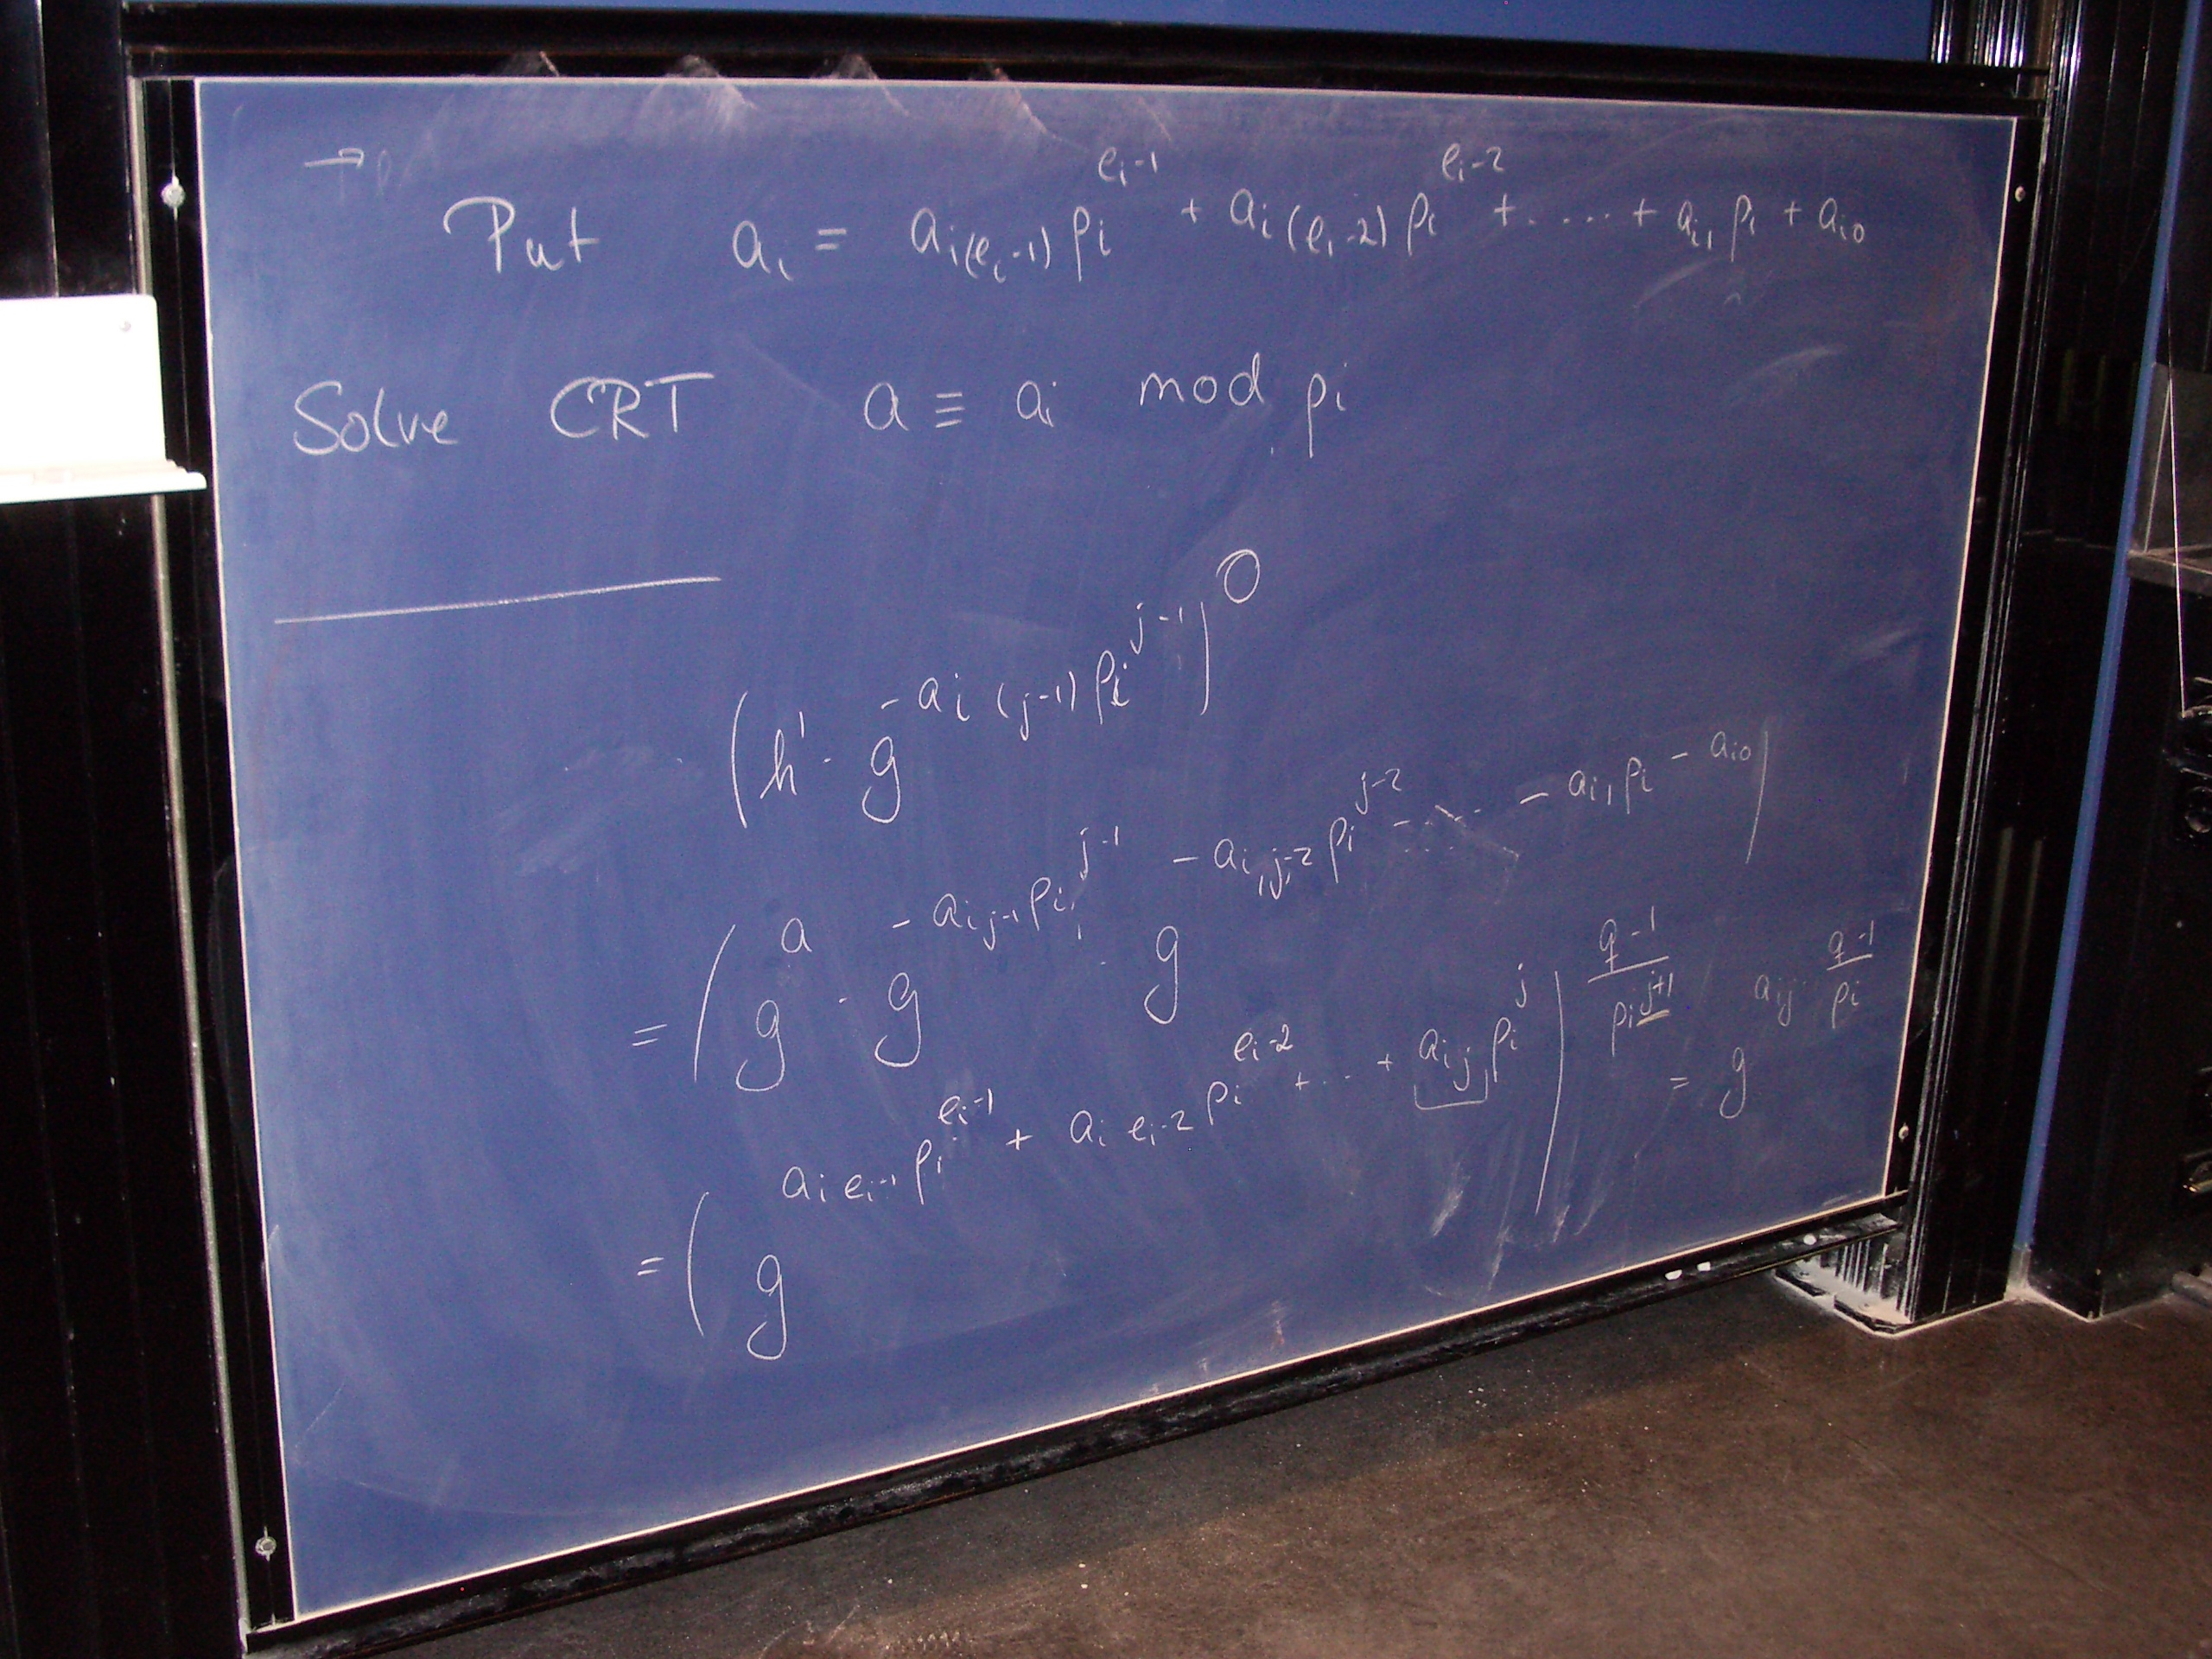 Put a_i = a_{i(e_i-1)} p_i^{e_i-1} + a_{i(e_i-2)} p_i^{e_i-2} + ..... + a_{i1} p_i + a_{i0}
Solve CRT a ≡ a_i mod p_i
(h' · g^{-a_{i(j-1)} p_i^{j-1}})^0
= (g^a · g^{-a_{ij-1} p_i^{j-1}} · g^{-a_{i,j-2} p_i^{j-2} ..... - a_{i1} p_i - a_{i0}})
= (g^{a_{ie_i-1} p_i^{e_i-1} + a_{ie_i-2} p_i^{e_i-2} + ... + a_{ij} p_i^j})^{\frac{q-1}{p_i^{j+1}}} = g^{a_{ij} \frac{q-1}{p_i}}